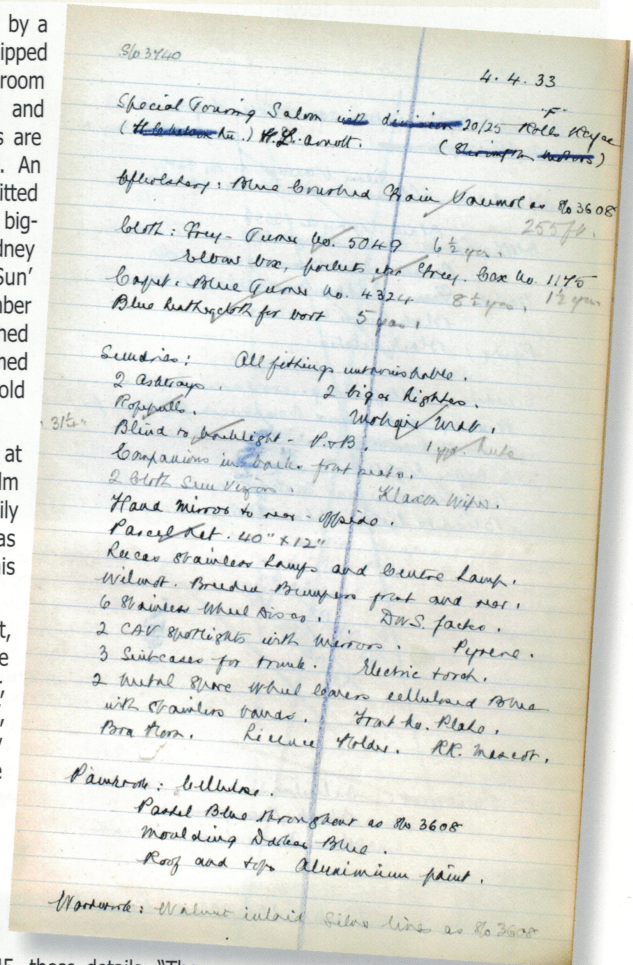 by a
ipped
room
and
s are
. An
itted
big-
dney
Sun'
nber
ned
ned
old
at
lm
ily
as
his
t,
e
r,
,
e
So 3740
4. 4. 33
"F"
Special Touring Saloon with division 20/25 Rolls Royce
H.L. Arnott.
Upholstery: Blue Crushed Grain Vaumol as So 3608
255 ft.
Cloth: Grey - Turner No. 5049 6½ yds.
Elbow box, pockets etc Grey. Cox No. 1175
1½ yds
Carpet: Blue Turner No. 4324 8½ yds,
Blue leathercloth for boot 5 yds,
Sundries: All fittings untarnishable.
2 Ashtrays. 2 Cigar Lighters.
Ropepulls. Mohair Mat.
31½" Blind to backlight - P.&B. 1 yd.
Companions in back front seats.
2 Cloth Sun Vizors. Klaxon Wiper.
Hand mirror to rear - offside.
Parcel Net. 40" x 12"
Lucas Stainless Lamps and Centre Lamp.
Wilmot. Breeden Bumpers front and rear.
6 Stainless Wheel Discs. DWS. Jacks.
2 CAV Spotlights with mirrors. Pyrene.
3 Suitcases for trunk. Electric torch.
2 metal Spare Wheel Covers cellulosed Blue
with Stainless bands. Front No. Plate.
Horn. Licence Holder. RR. Mascot.
Paintwork: Cellulose.
Pastel Blue throughout as So 3608
Moulding Darker Blue.
Roof and tops Aluminium paint.
Woodwork: Walnut inlaid Silver lines as So 3608
these details "The